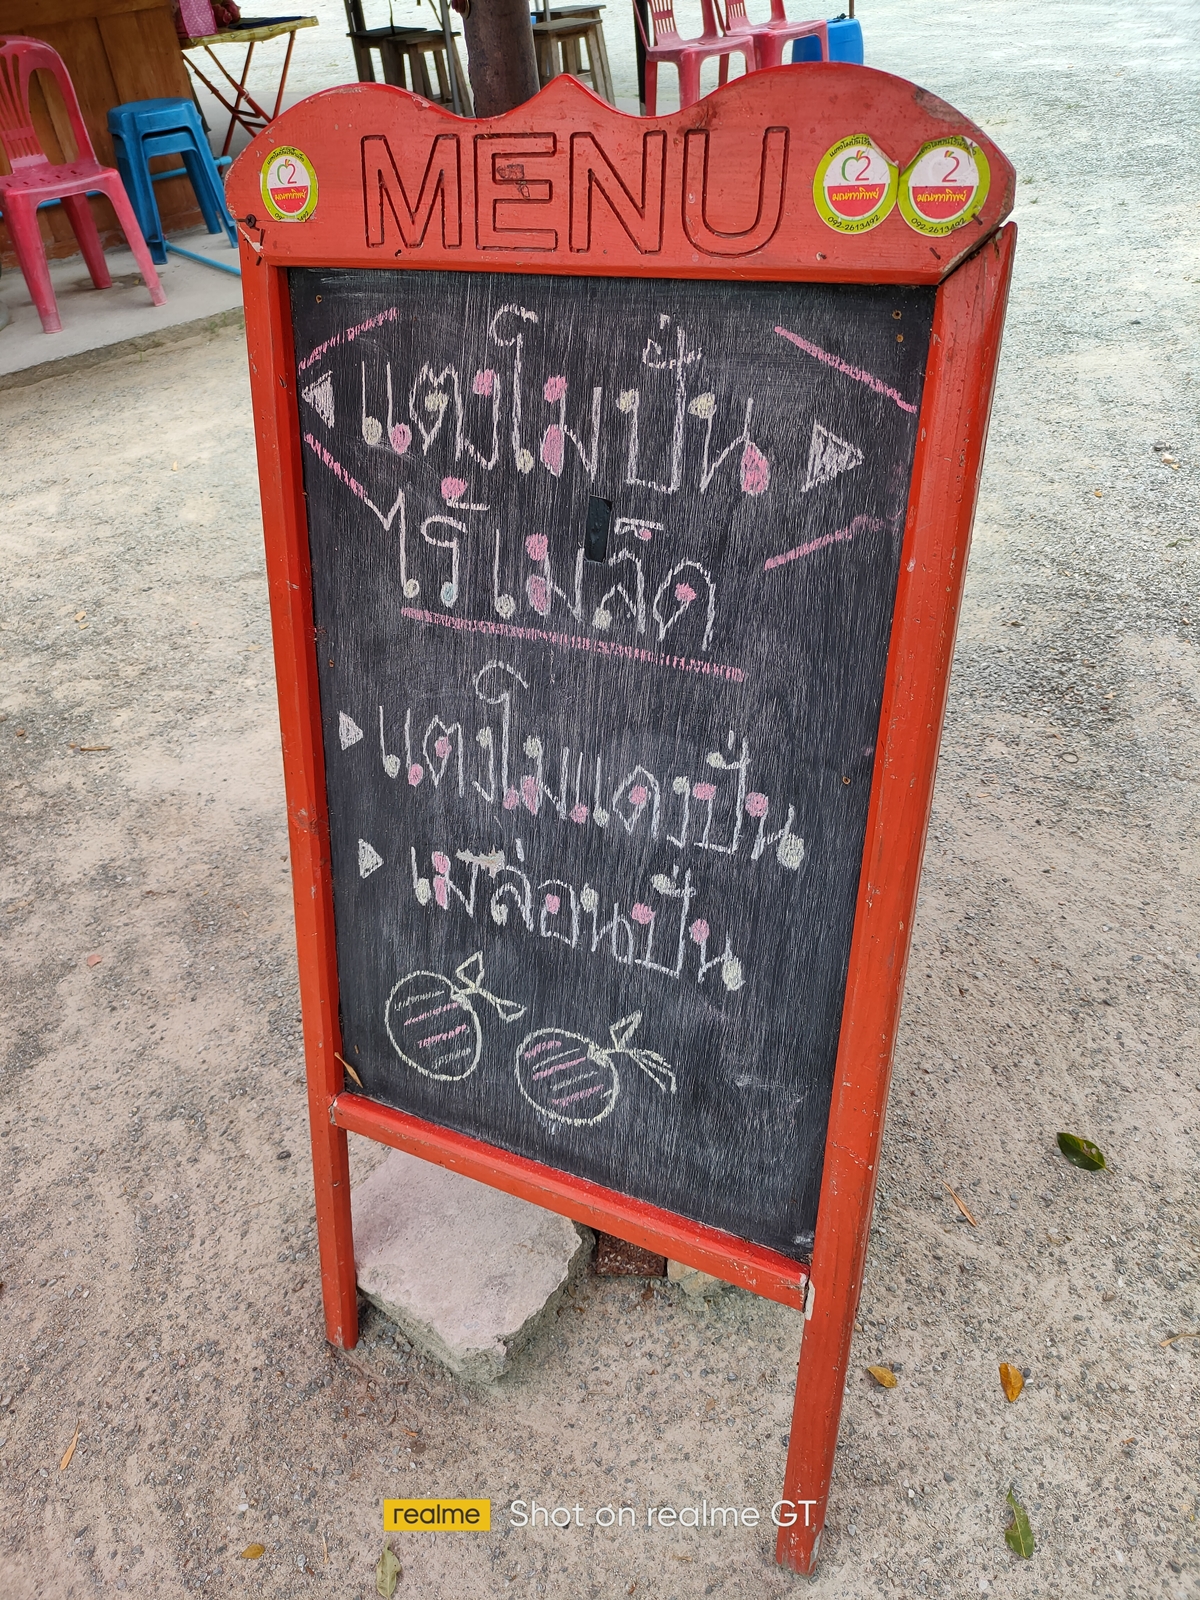 MENU
2
มณฑาทิพย์
092-2613492
2
มณฑาทิพย์
092-2613492
2
มณฑาทิพย์
092-2613492
แตงโมปั่น
ไร้เมล็ด
แตงโมแดงปั่น
เมล่อนปั่น
realme Shot on realme GT